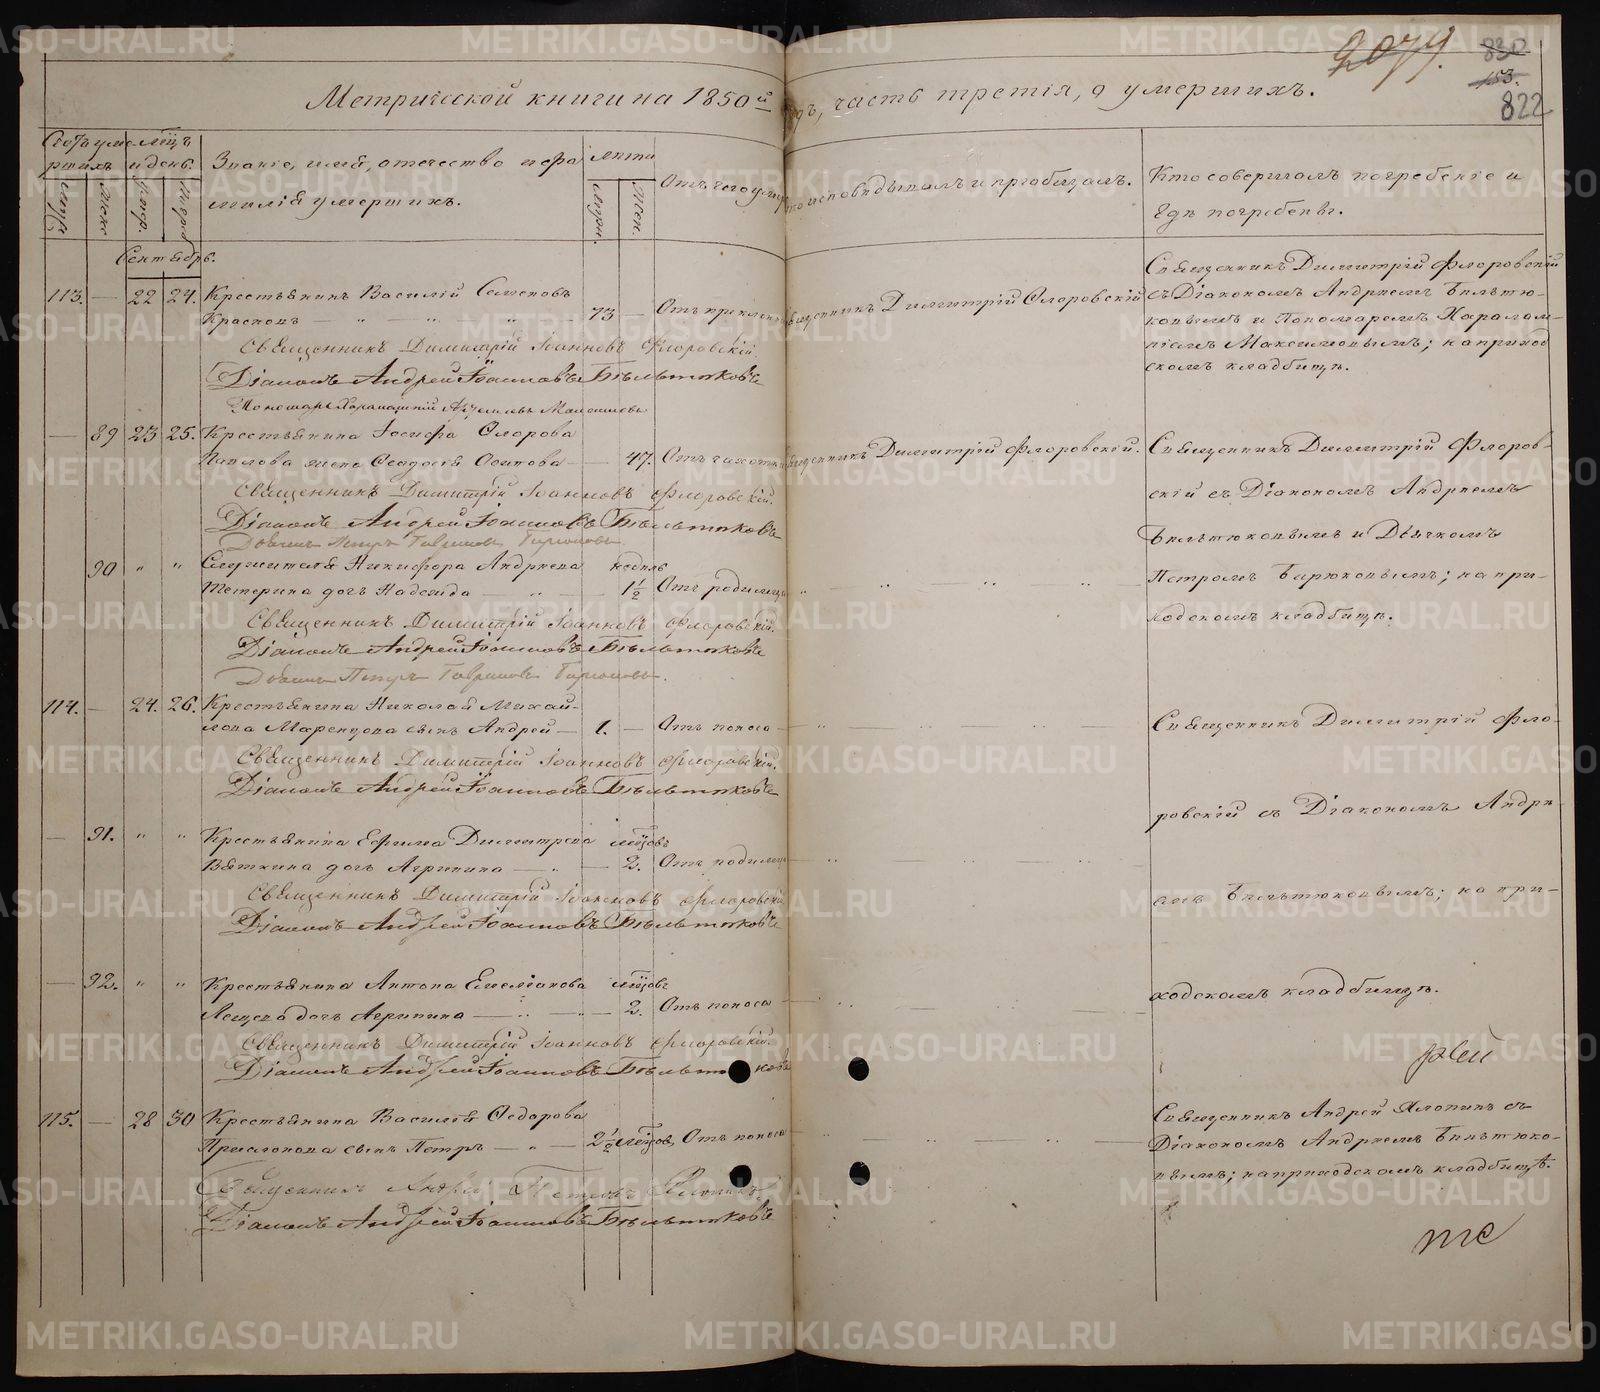 2079.
830
153.
822
Метрической книги на 1850й годъ, часть третія, о умершихъ.
Счотъ умершихъ
Мѣсяцъ и день.
Званіе, имя, отечество и фамилія умершихъ.
Лѣта
Отъ чего умеръ
Кто исповѣдывалъ и пріобщалъ.
Кто совершалъ погребеніе и гдѣ погребены.
Муж.
Жен.
Сентябрь.
113. — 22 24. Крестьянинъ Василій Семеновъ
Красковъ — 73 — Отъ
Священникъ Димитрій Флоровскій
Священникъ Димитрій Флоровскій
съ Діакономъ Андреемъ Бильтю-
ковымъ и Пономаремъ Харалам-
піемъ Максимовымъ; на приход
скомъ кладбищѣ.
Священникъ Димитрій Іоанновъ Флоровскій.
Діаконъ Андрей Іоанновъ Бѣльтюковъ
Пономарь Максимовъ
— 89 23 25. Крестьянина Іосифа Флорова
Павлова жена Феодосія Осипова — 47. Отъ чахотки
Священникъ Димитрій Флоровскій.
Священникъ Димитрій Флоров-
скій съ Діакономъ Андреемъ
Бильтюковымъ и Дьячкомъ
Петромъ Бирюковымъ; на при-
ходскомъ кладбищѣ.
Священникъ Димитрій Іоанновъ Флоровскій.
Діаконъ Андрей Іоанновъ Бѣльтюковъ
Дьячекъ Петръ Гавриловъ Бирюковъ.
90 " " Служителя Никифора Андреева недѣль
Тетерина дочь Надежда — 1½ Отъ родимца
Священникъ Димитрій Іоанновъ Флоровскій.
Діаконъ Андрей Іоанновъ Бѣльтюковъ
Дьячекъ Петръ Гавриловъ Бирюковъ.
114. — 24. 26. Крестьянина Николая Михай-
лова Маренцова сынъ Андрей — 1. — Отъ поноса
Священникъ Димитрій Фло-
ровскій съ Діакономъ Андре-
емъ Бильтюковымъ; на при-
ходскомъ кладбищѣ.
Священникъ Димитрій Іоанновъ Флоровскій.
Діаконъ Андрей Іоанновъ Бѣльтюковъ
— 91. " " Крестьянина Ефима Димитрева мѣсяцовъ
Вяткина дочь Агрипина — 2. Отъ родимца
Священникъ Димитрій Іоанновъ Флоровскій
Діаконъ Андрей Іоанновъ Бѣльтюковъ
— 92. " " Крестьянина Антона Емеліанова мѣсяцовъ
дочь Агрипина — 2. Отъ поноса
Священникъ Димитрій Іоанновъ Флоровскій.
Діаконъ Андрей Іоанновъ Бѣльтюковъ
115. — 28 30 Крестьянина Василія Федорова
сынъ Петръ — 2½ мѣсяцовъ Отъ поноса
Священникъ Андрей Яλопинъ съ
Діакономъ Андреемъ Бильтюко-
вымъ; на приходскомъ кладбищѣ.
Священникъ Андрей Петровъ
Діаконъ Андрей Іоанновъ Бѣльтюковъ
METRIKI.GASO-URAL.RU